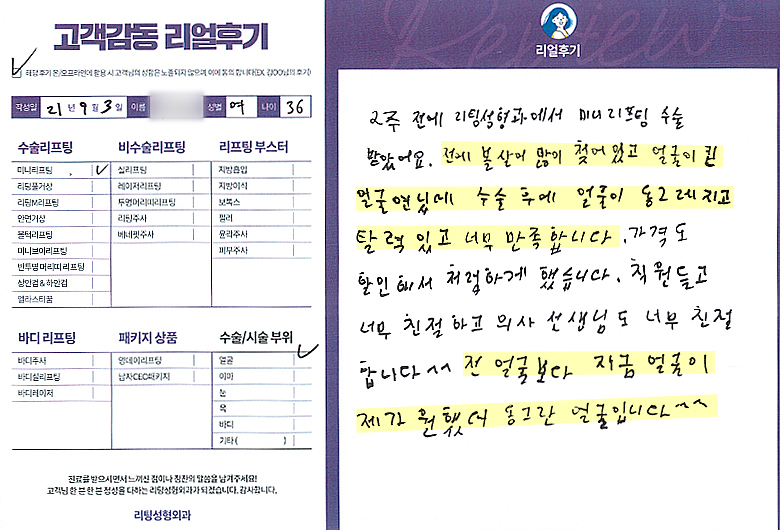 고객감동 리얼후기
해당 후기 온/오프라인에 활용 시 고객님의 성함은 노출되지 않으며 이에 동의 합니다(EX. 김OO님의 후기)
작성일 21년 9월 3일 이름 성별 여 나이 36
수술리프팅 비수술리프팅 리프팅 부스터
미니리프팅 실리프팅 지방흡입
리팅풀거상 레이저리프팅 지방이식
리팅M리프팅 투명머리띠리프팅 보톡스
안면거상 리팅주사 필러
문턱리프팅 베네핏주사 윤곽주사
미니브이리프팅 피부주사
반투명 머리띠 리프팅
상안검 & 하안검
엘라스티꿈
바디 리프팅 패키지 상품 수술/시술 부위
바디주사 영데이리프팅 얼굴
바디실리프팅 남자CEO패키지 이마
바디레이저 눈
목
바디
기타 ( )
진료를 받으시면서 느끼신 점이나 칭찬의 말씀을 남겨주세요!
고객님 한 분 한 분 정성을 다하는 리팅성형외과가 되겠습니다. 감사합니다.
리팅성형외과
Review
리얼후기
2주 전에 리팅성형과에서 미니리프팅 수술
받았어요. 전에 볼살이 많이 쳐져있고 얼굴이 긴
얼굴였는데 수술 후에 얼굴이 동그래지고
탈력 있고 너무 만족합니다. 가격도
할인해서 저렴하게 했습니다. 직원들고
너무 친절하고 의사 선생님도 너무 친절
합니다~~ 전 얼굴보다 지금 얼굴이
제가 원했어 동그란 얼굴입니다^^